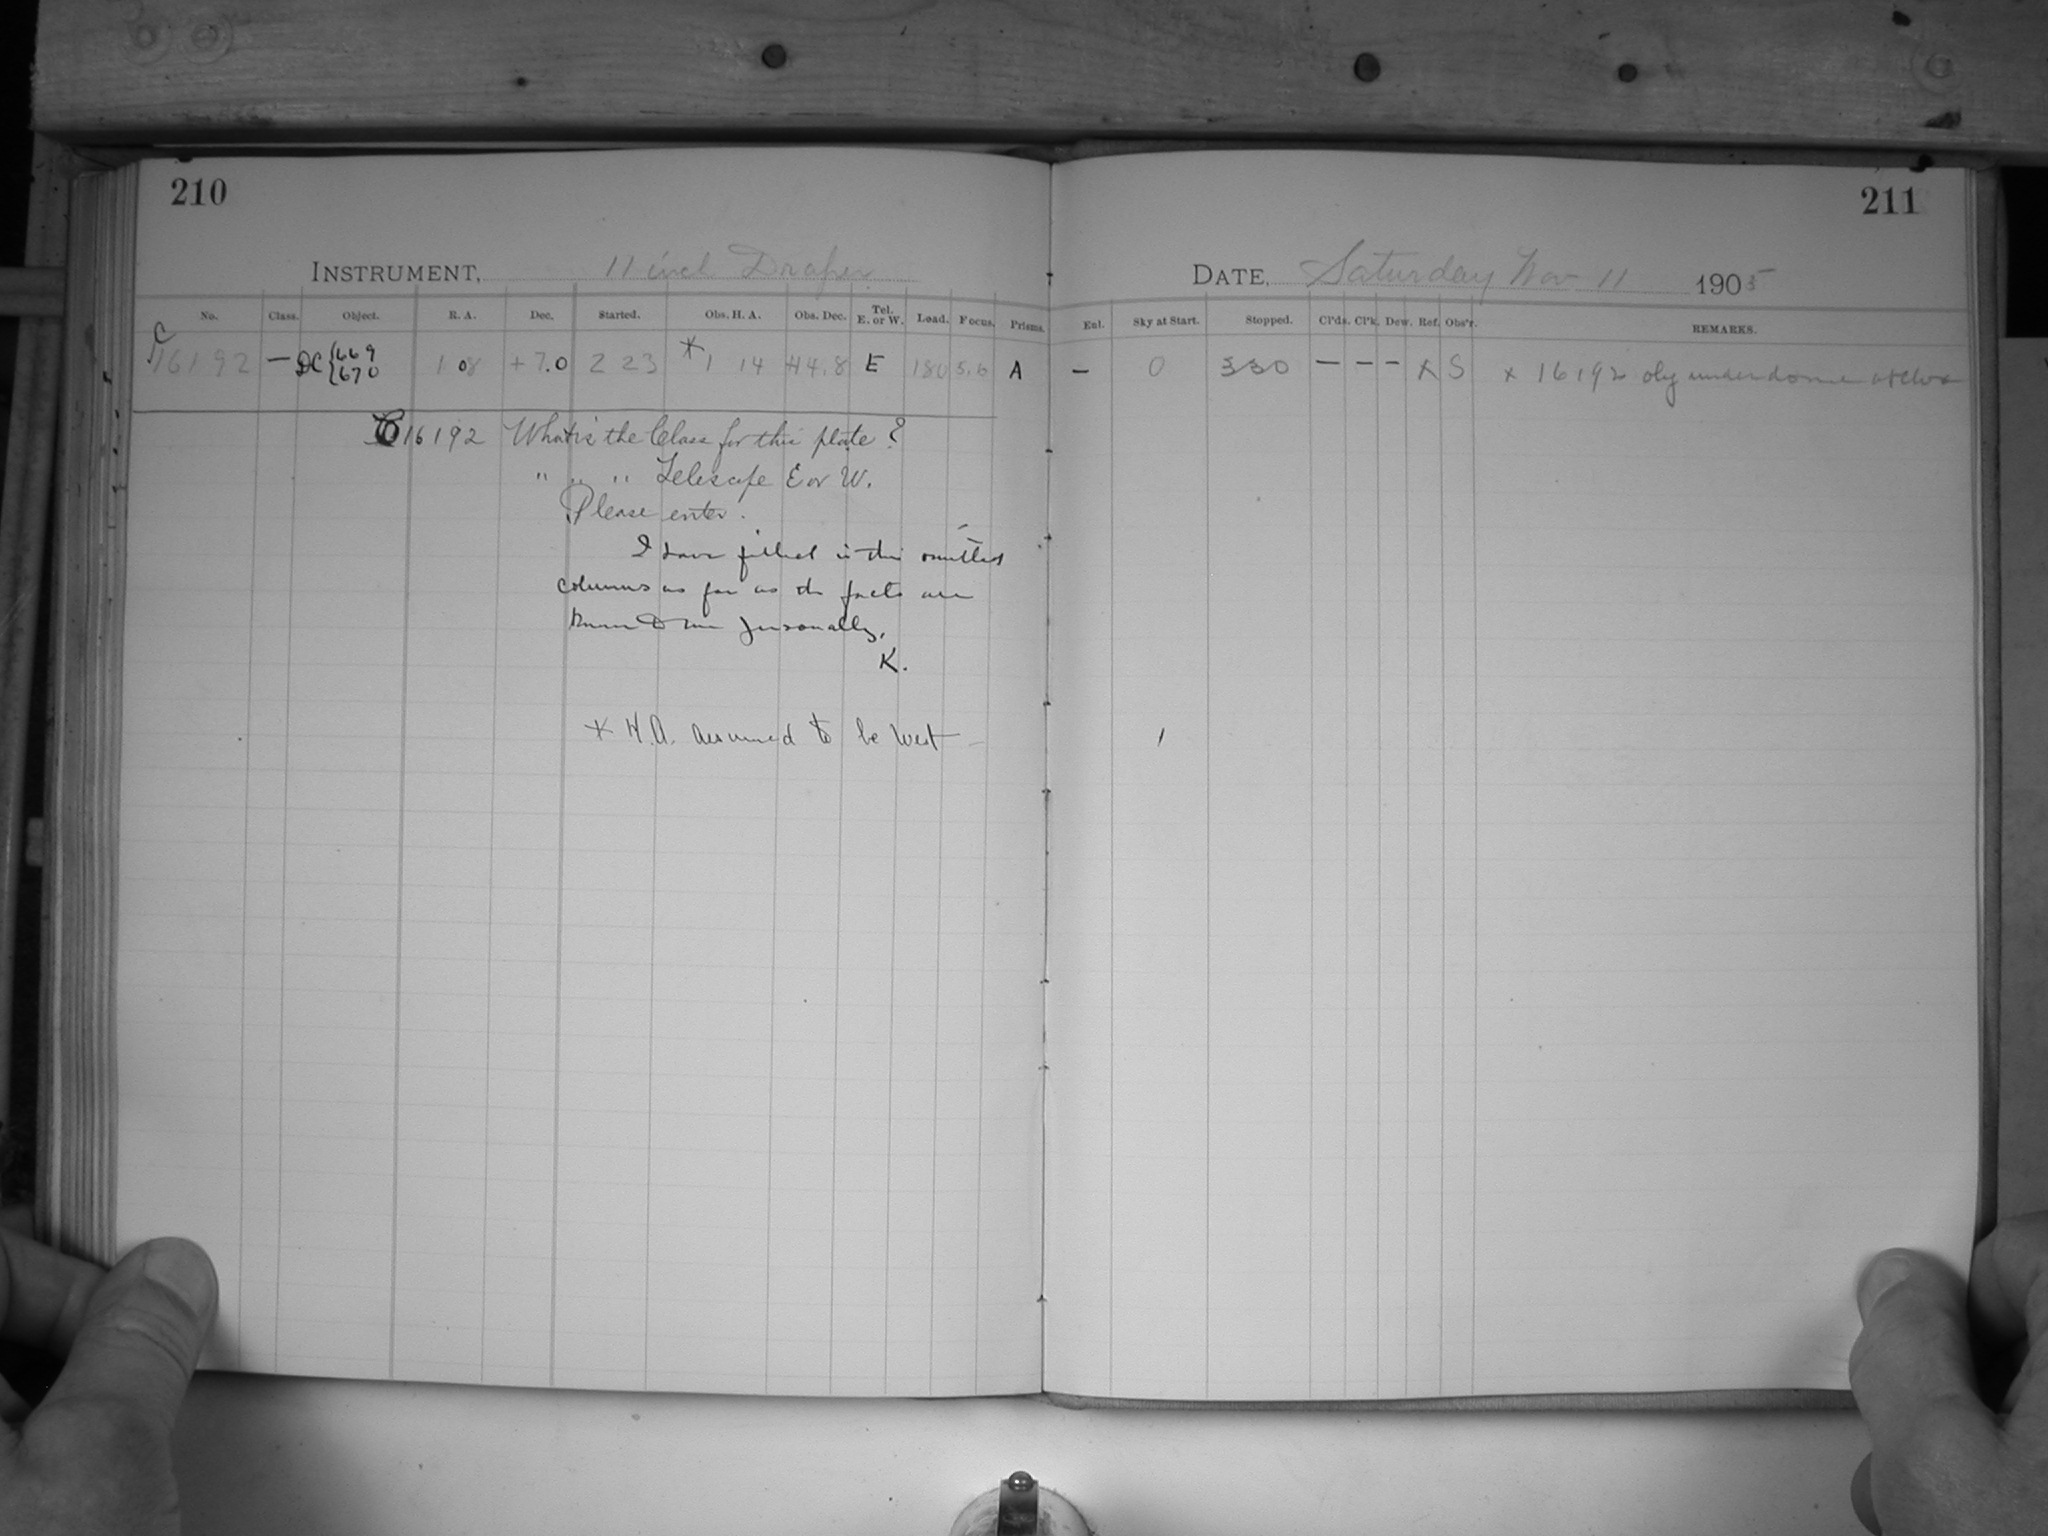 210
211
INSTRUMENT, 11 inch Draper
DATE, Saturday Nov 11 1905
No. Class. Object. R. A. Dec. Started. Obs. H. A. Obs. Dec. Tel. E. or W. Load. Focus. Prisms. Enl. Sky at Start. Stopped. Cl'ds. Cl'k. Dew. Ref. Obs'r. REMARKS.
C 16192 — DC { 669 670 1 08 +7.0 2 23 * 1 14 +4.8 E 180 5.6 A — 0 330 — — — x S x 16192 obj under dome
C16192 What is the Class for this plate?
" " " Telescope E or W.
Please enter.
I have filled in the omitted
columns as far as the facts are
known to me personally,
K.
* H.A. assumed to be West —